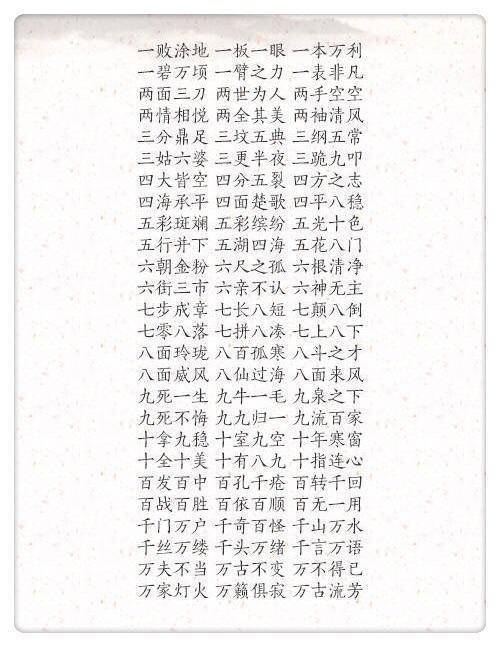 一败涂地 一板一眼 一本万利
一碧万顷 一臂之力 一表非凡
两面三刀 两世为人 两手空空
两情相悦 两全其美 两袖清风
三分鼎足 三坟五典 三纲五常
三姑六婆 三更半夜 三跪九叩
四大皆空 四分五裂 四方之志
四海承平 四面楚歌 四平八稳
五彩斑斓 五彩缤纷 五光十色
五行并下 五湖四海 五花八门
六朝金粉 六尺之孤 六根清净
六街三市 六亲不认 六神无主
七步成章 七长八短 七颠八倒
七零八落 七拼八凑 七上八下
八面玲珑 八百孤寒 八斗之才
八面威风 八仙过海 八面来风
九死一生 九牛一毛 九泉之下
九死不悔 九九归一 九流百家
十拿九稳 十室九空 十年寒窗
十全十美 十有八九 十指连心
百发百中 百孔千疮 百转千回
百战百胜 百依百顺 百无一用
千门万户 千奇百怪 千山万水
千丝万缕 千头万绪 千言万语
万夫不当 万古不变 万不得已
万家灯火 万籁俱寂 万古流芳